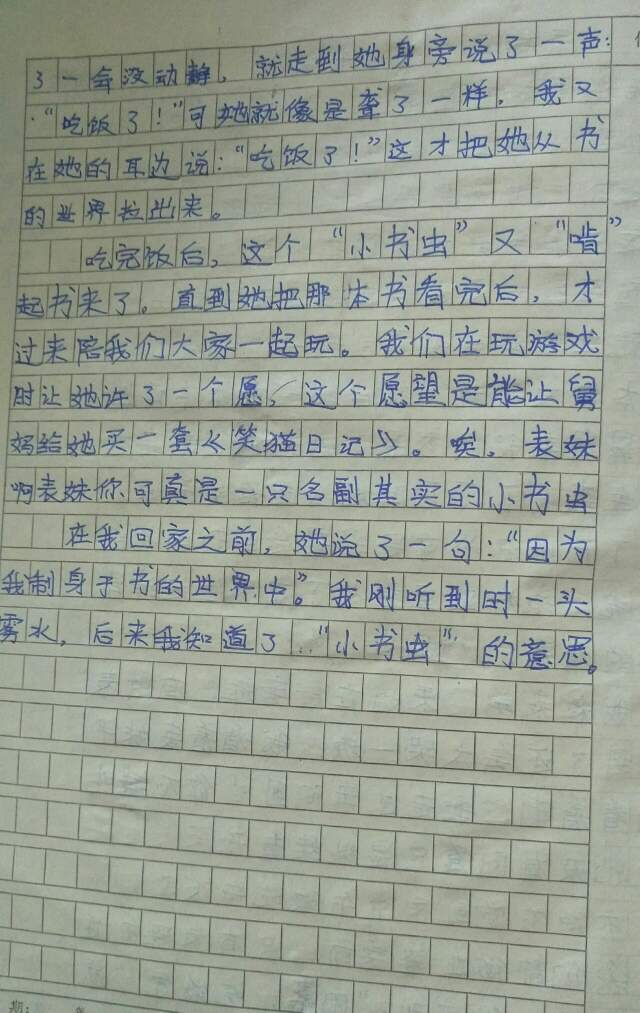 了一会没动静，就走到她身旁说了一声：
“吃饭了！”可她就像是聋了一样，我又
在她的耳边说：“吃饭了！”这才把她从书
的世界拉出来。
吃完饭后，这个“小书虫”又“啃”
起书来了。直到她把那本书看完后，才
过来陪我们大家一起玩。我们在玩游戏
时让她许了一个愿，这个愿望是能让舅
妈给她买一套《笑猫日记》。唉，表妹
啊表妹你可真是一只名副其实的小书虫
在我回家之前，她说了一句：“因为
我制身于书的世界中。”我刚听到时一头
雾水，后来我知道了“小书虫”的意思。
期：